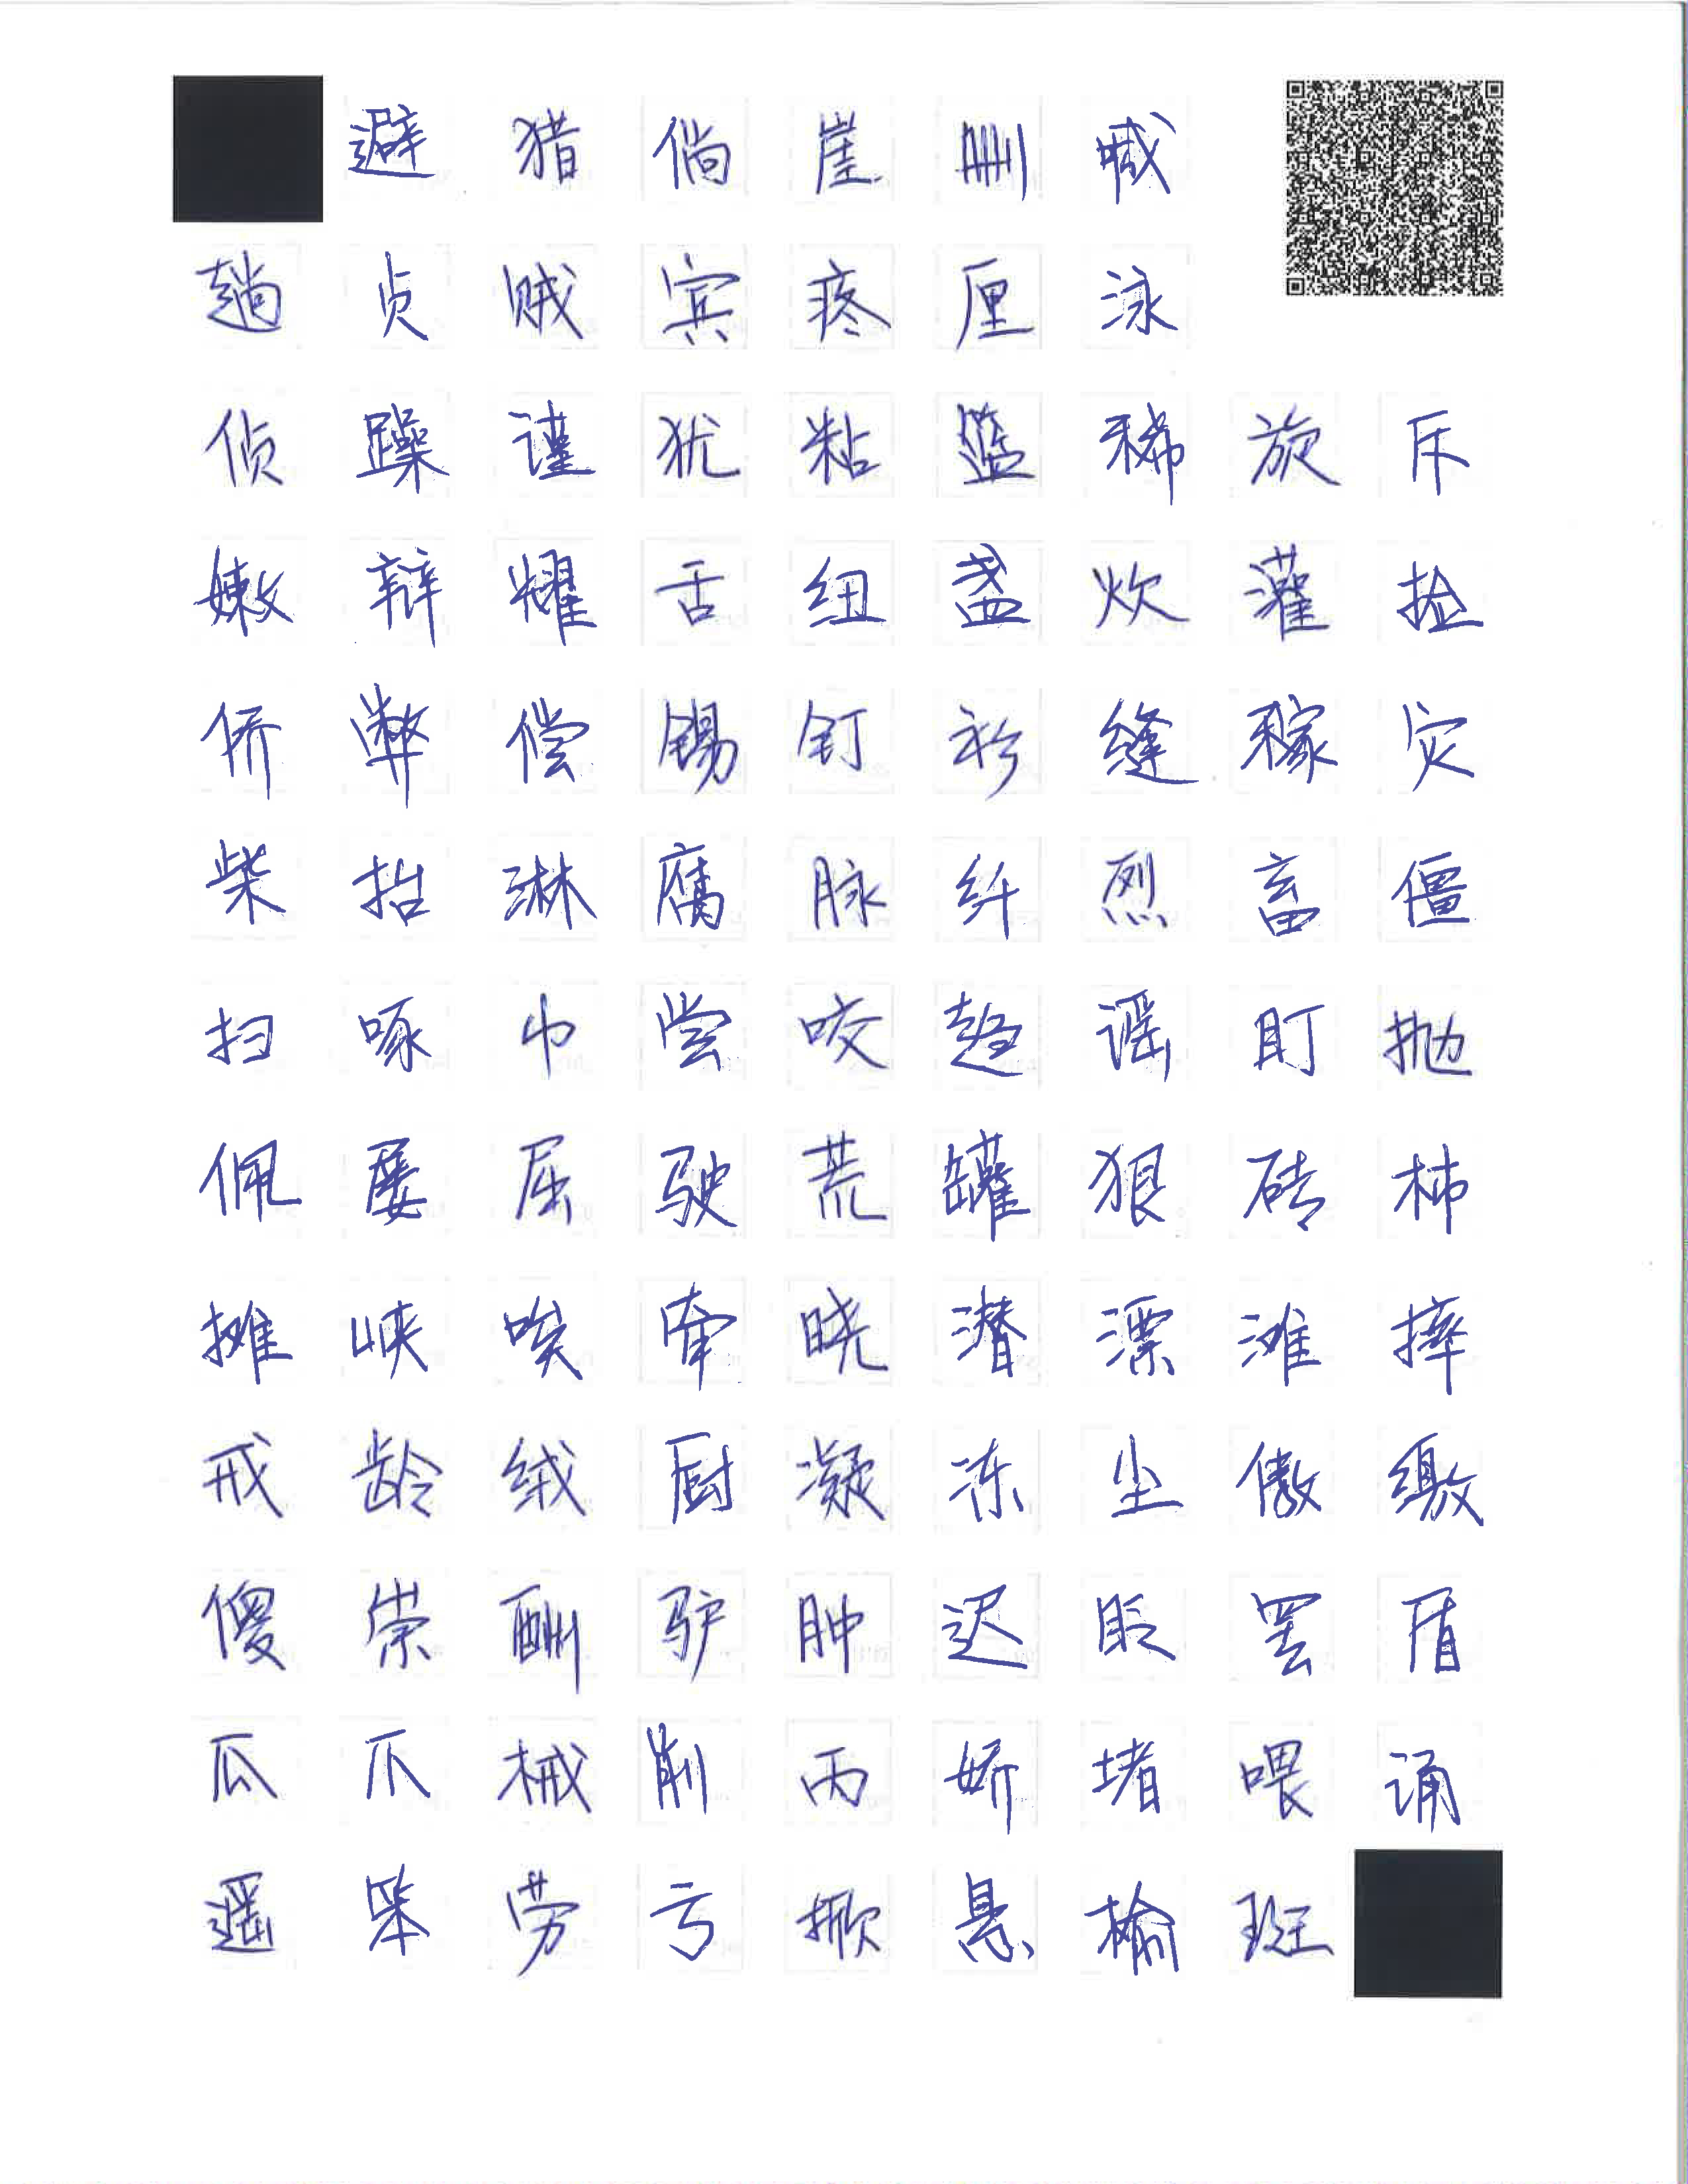 避 猎 倘 崖 删 喊
趟 贞 贼 宾 疼 厘 泳
侦 躁 谨 犹 粘 篮 稀 旋 斥
嫩 辩 耀 舌 纽 盏 炊 灌 捡
侨 弊 偿 锡 钉 衫 缝 稼 灾
柴 抬 淋 腐 脉 纤 烈 畜 僵
扫 啄 巾 尝 咬 趋 谣 盯 抛
佩 屡 屈 驶 荒 罐 狠 砖 柿
摊 峡 唉 牵 晓 潜 漂 滩 摔
戒 龄 绒 厨 凝 冻 尘 傲 缴
傻 崇 酬 驴 肿 迟 眨 罢 盾
瓜 爪 械 削 丙 娇 堵 喂 诵
遥 笨 劳 亏 掀 悬 榆 斑